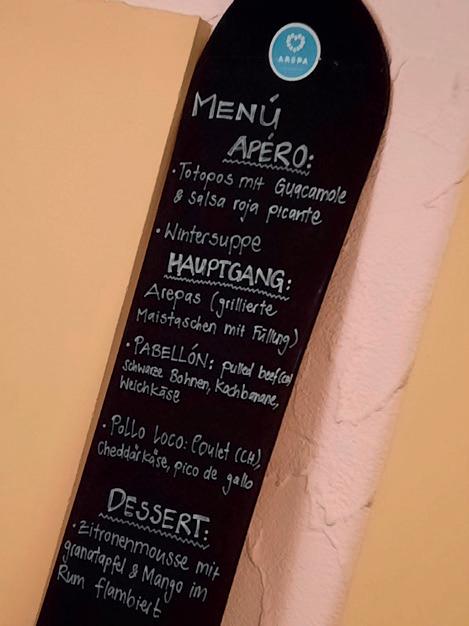 AREPA
MENÚ
APÉRO:
• Totopos mit Guacamole
& Salsa roja picante
• Wintersuppe
HAUPTGANG:
Arepas (grillierte
Maistaschen mit Füllung)
• PABELLÓN: pulled beef (CH)
schwarze Bohnen, Kochbanane,
Weichkäse
• Pollo Loco: Poulet (CH),
Cheddarkäse, pico de gallo
DESSERT:
• Zitronenmousse mit
granatapfel & Mango im
Rum flambiert